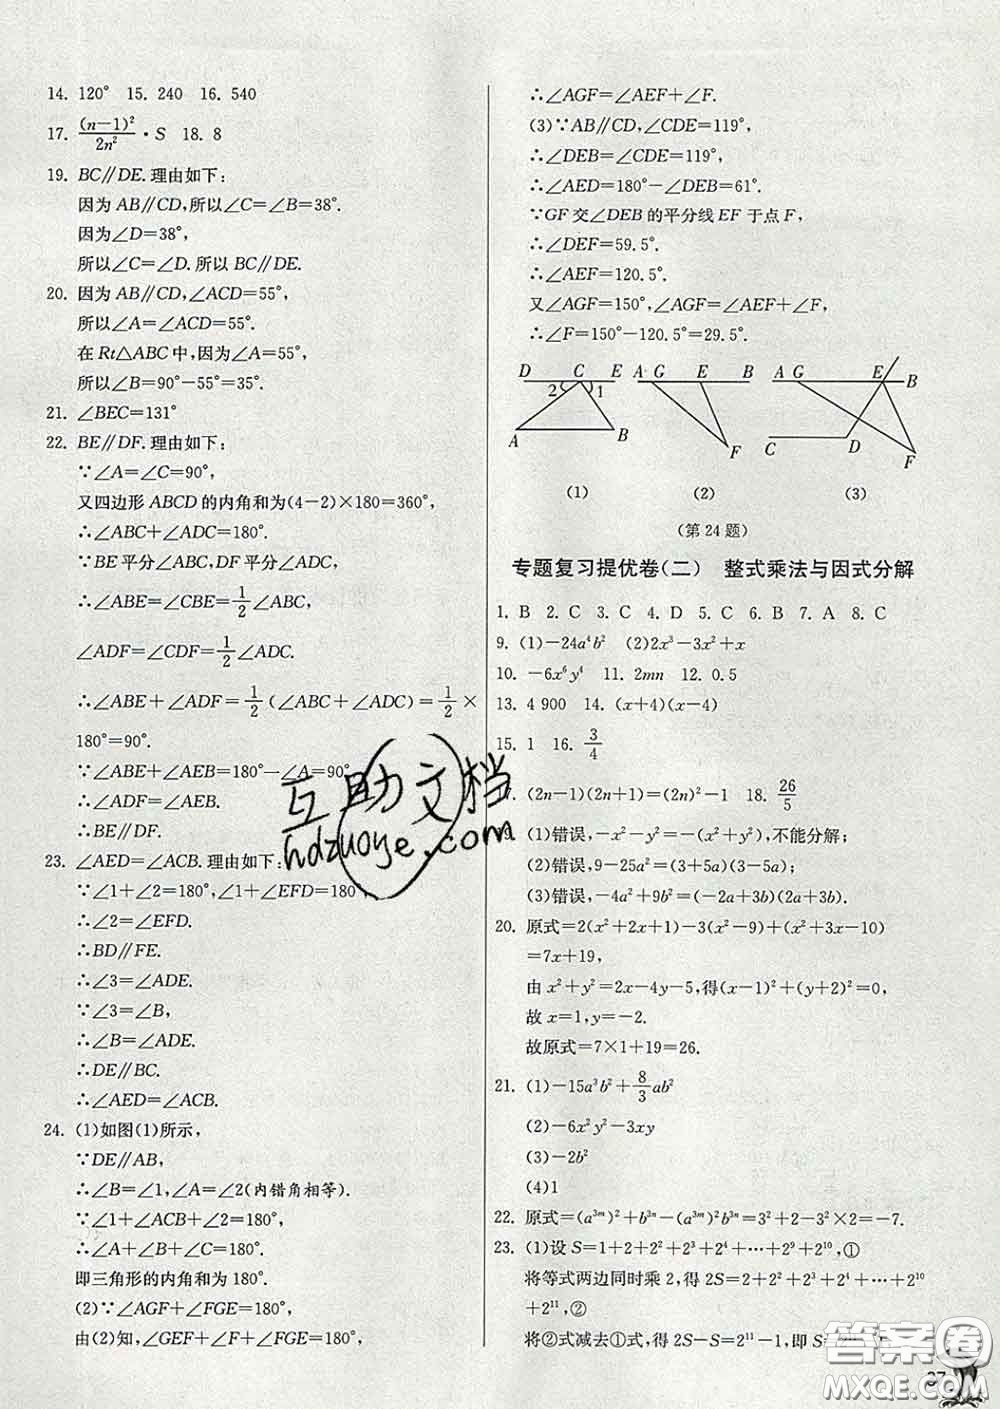 14. 120° 15. 240 16. 540
17. (n−1)²/2n²·S 18. 8
19. BC∥DE.理由如下:
因为AB∥CD,所以∠C=∠B=38°.
因为∠D=38°,
所以∠C=∠D.所以BC∥DE.
20. 因为AB∥CD,∠ACD=55°,
所以∠A=∠ACD=55°.
在Rt△ABC中,因为∠A=55°,
所以∠B=90°−55°=35°.
21. ∠BEC=131°
22. BE∥DF.理由如下:
∵∠A=∠C=90°,
又四边形ABCD的内角和为(4−2)×180=360°,
∴∠ABC+∠ADC=180°.
∵BE平分∠ABC,DF平分∠ADC,
∴∠ABE=∠CBE=1/2∠ABC,
∠ADF=∠CDF=1/2∠ADC.
∴∠ABE+∠ADF=1/2(∠ABC+∠ADC)=1/2×
180°=90°.
∵∠ABE+∠AEB=180°−∠A=90°
∴∠ADF=∠AEB.
∴BE∥DF.
23. ∠AED=∠ACB.理由如下:
∵∠1+∠2=180°,∠1+∠EFD=180°,
∴∠2=∠EFD.
∴BD∥FE.
∴∠3=∠ADE.
∵∠3=∠B,
∴∠B=∠ADE.
∴DE∥BC.
∴∠AED=∠ACB.
24. (1)如图(1)所示,
∵DE∥AB,
∴∠B=∠1,∠A=∠2(内错角相等).
∵∠1+∠ACB+∠2=180°,
∴∠A+∠B+∠ACB=180°.
即三角形的内角和为180°.
(2)∵∠AGF+∠FGE=180°,
由(2)知,∠GEF+∠F+∠FGE=180°,
∴∠AGF=∠AEF+∠F.
(3)∵AB∥CD,∠CDE=119°,
∴∠DEB=∠CDE=119°,
∴∠AED=180°−∠DEB=61°.
∵GF交∠DEB的平分线EF于点F,
∴∠DEF=59.5°.
∴∠AEF=120.5°.
又∠AGF=150°,∠AGF=∠AEF+∠F,
∴∠F=150°−120.5°=29.5°.
D C E A G E B A G E B
2 1
A B F C D F
(1) (2) (3)
(第24题)
专题复习提优卷(二) 整式乘法与因式分解
1. B 2. C 3. C 4. D 5. C 6. B 7. A 8. C
9. (1)−24a⁴b² (2)2x³−3x²+x
10. −6x⁶y⁴ 11. 2mn 12. 0.5
13. 4 900 14. (x+4)(x−4)
15. 1 16. 3/4
7. (2n−1)(2n+1)=(2n)²−1 18. 26/5
9. (1)错误,−x²−y²=−(x²+y²),不能分解;
(2)错误,9−25a²=(3+5a)(3−5a);
(3)错误,−4a²+9b²=(−2a+3b)(2a+3b).
20. 原式=2(x²+2x+1)−3(x²−9)+(x²+3x−10)
=7x+19,
由x²+y²=2x−4y−5,得(x−1)²+(y+2)²=0,
故x=1,y=−2.
故原式=7×1+19=26.
21. (1)−15a³b²+8/3ab²
(2)−6x²y²−3xy
(3)−2b²
(4)1
22. 原式=(a³ᵐ)²+b³ⁿ−(a³ᵐ)²b³ⁿ=3²+2−3²×2=−7.
23. (1)设S=1+2+2²+2³+2⁴+…+2⁹+2¹⁰,①
将等式两边同时乘2,得2S=2+2²+2³+2⁴+…+2¹⁰
+2¹¹,②
将②式减去①式,得2S−S=2¹¹−1,即S=2¹¹
互助文档
hdzuoye.com
答案圈
MXQE.COM